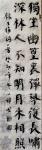 獨坐幽篁裏彈琴復長嘯
深林人不知明月來相照